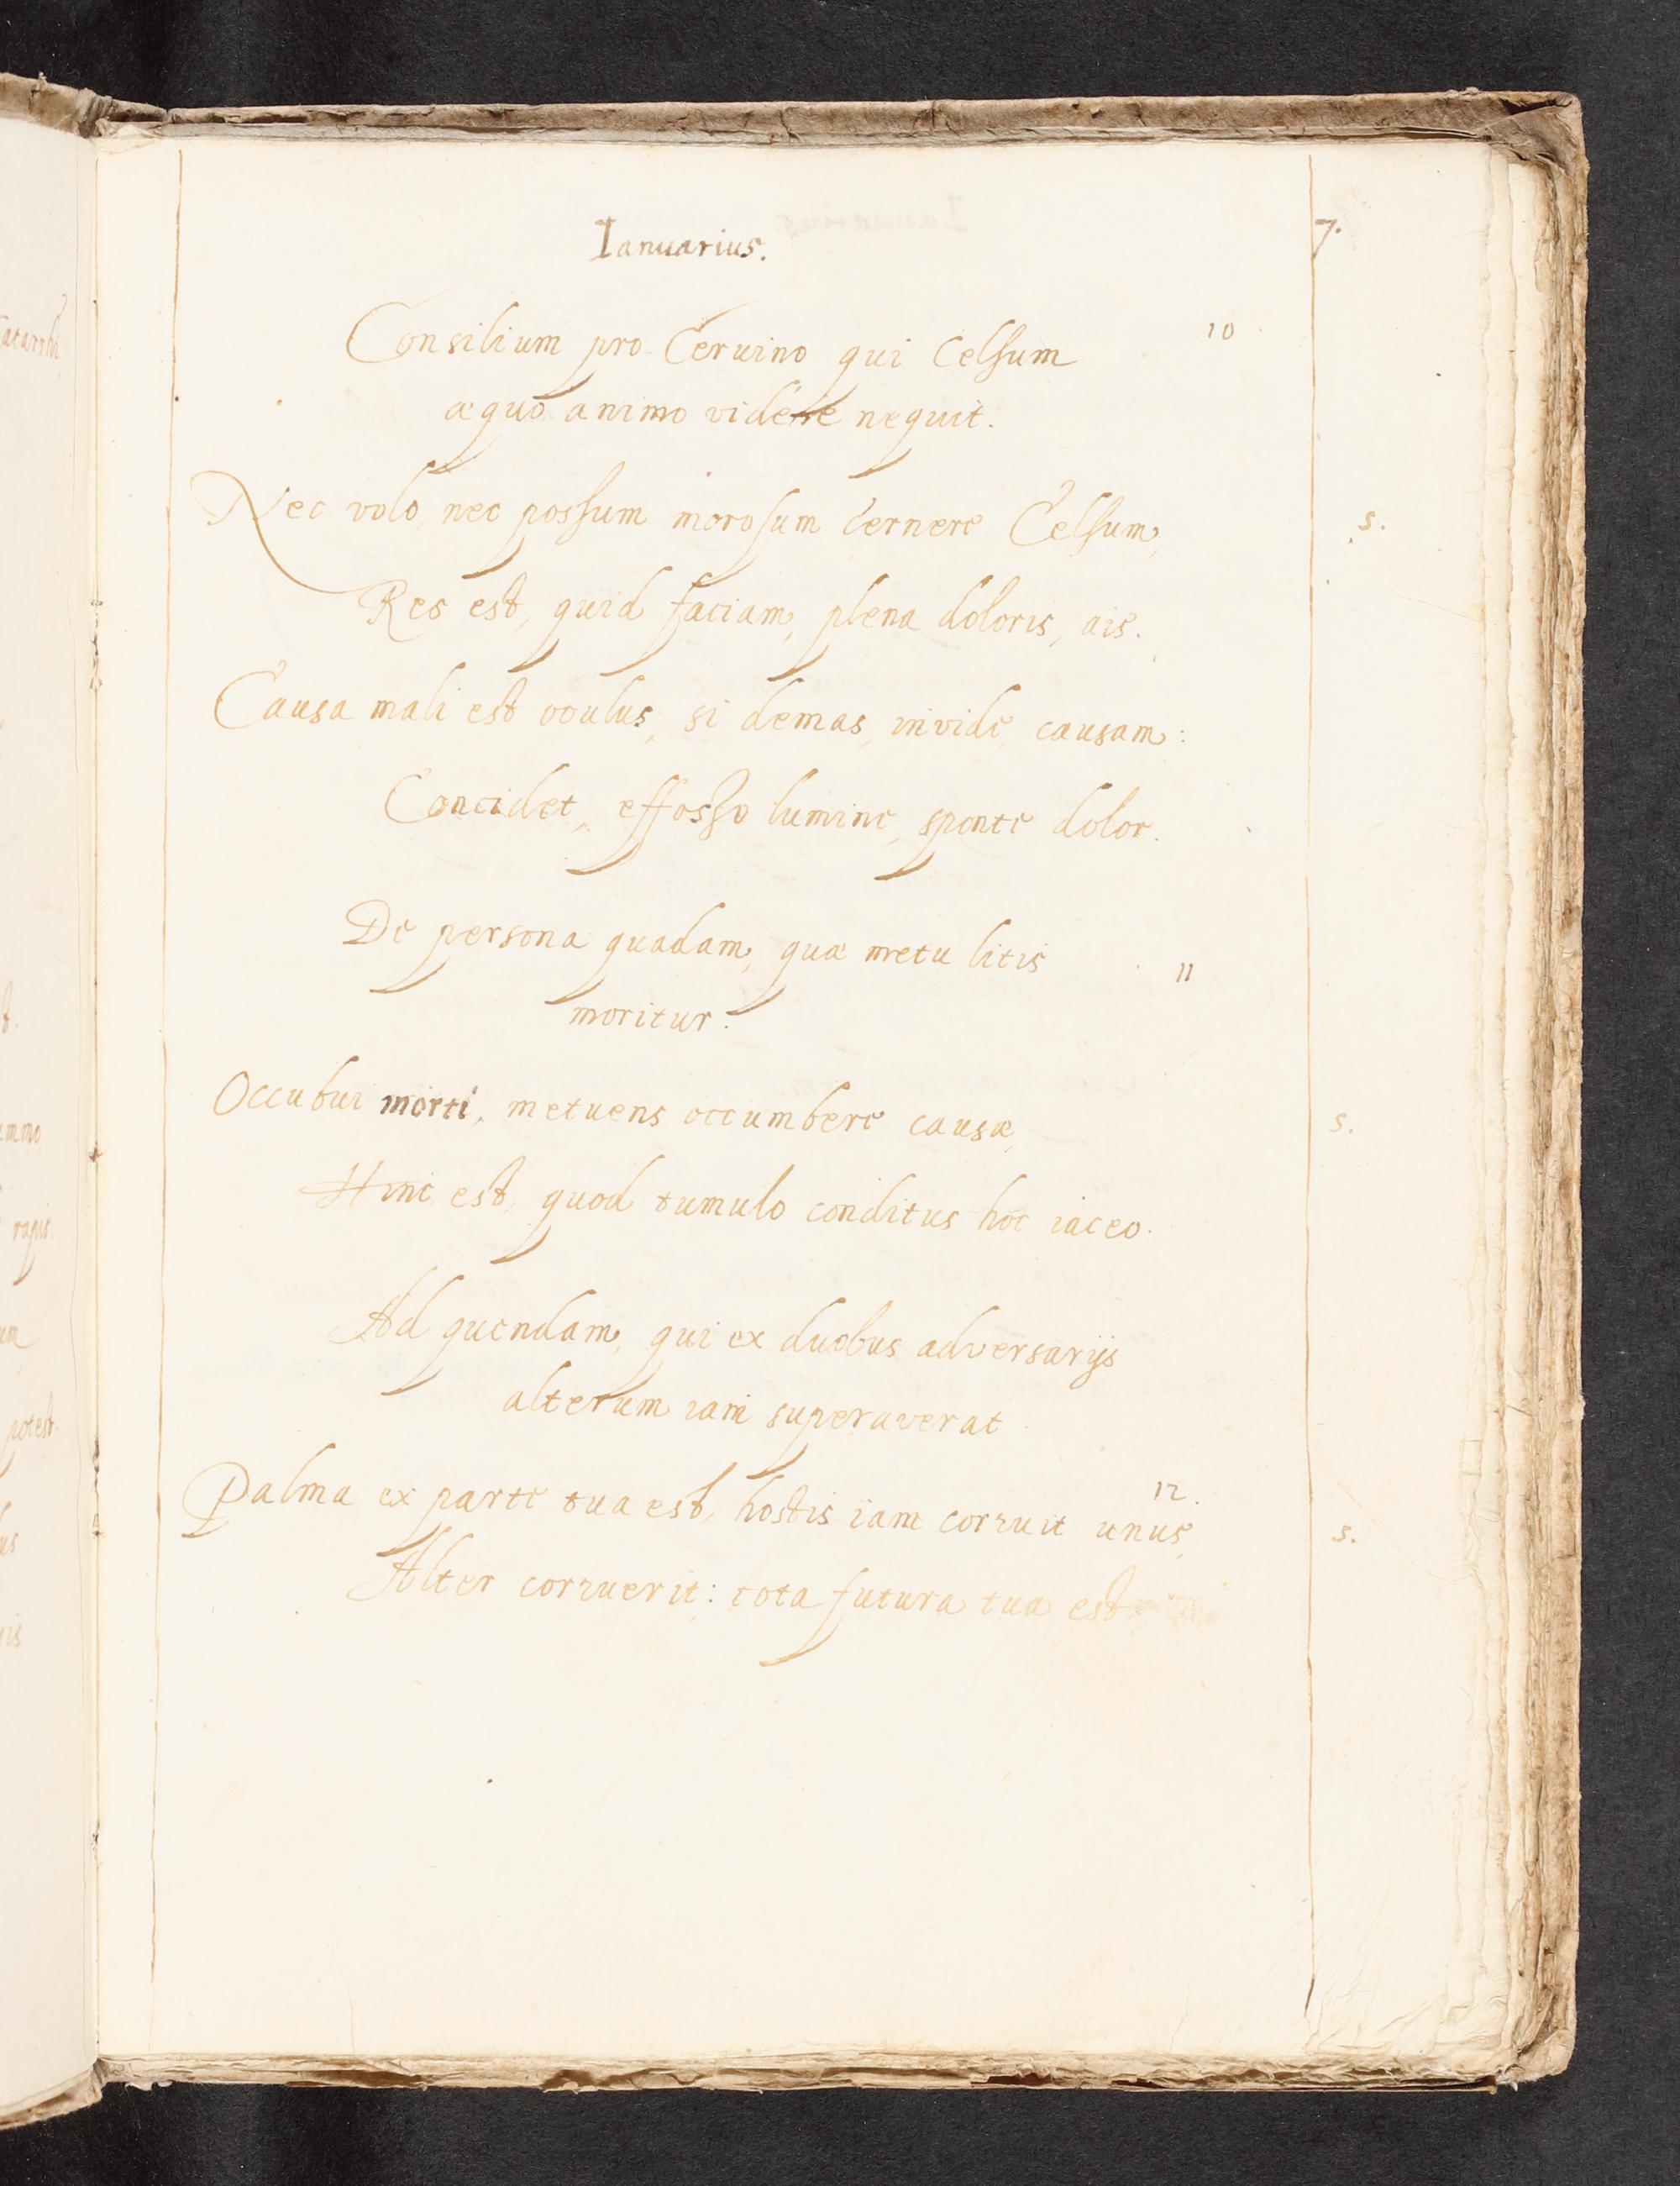 Ianuarius. 7.
Consilium pro Ceruino qui Celsum 10
æquo animo videre nequit.
Nec volo, nec possum morosum cernere Celsum, s.
Res est, quid faciam, plena doloris, ais.
Causa mali est oculus, si demas, invide, causam:
Concidet, effosso lumine, sponte dolor.
De persona quadam, quæ metu litis 11
moritur.
Occubui morti, metuens occumbere causæ, s.
Hinc est, quod tumulo conditus hoc iaceo.
Ad quendam, qui ex duobus adversarijs
alterum iam superaverat
12.
Palma ex parte tua est, hostis iam corruit unus, s.
Alter corruerit: tota futura tua est
atarrhi
ummo
rapis
um
potest
us
uis